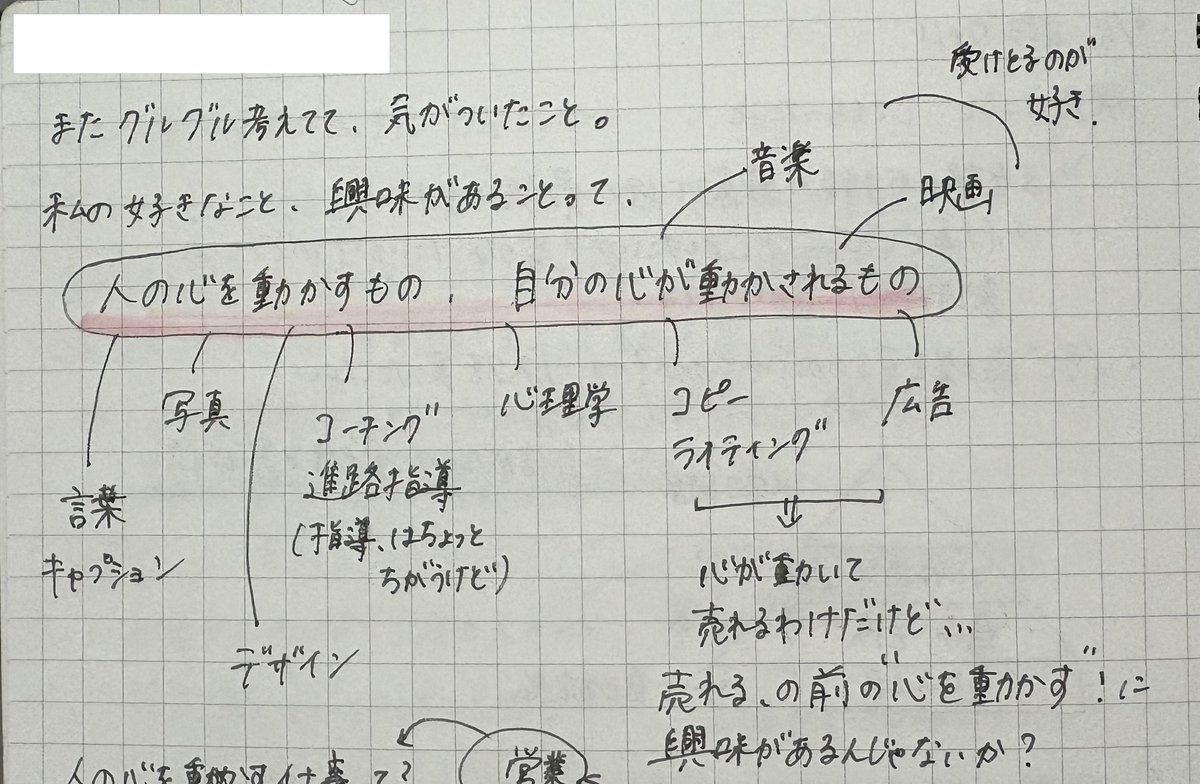 またグルグル考えてて、気がついたこと。
私の好きなこと、興味があることって、
人の心を動かすもの、自分の心が動かされるもの
音楽
映画
受けとるのが
好き、
言葉
キャプション
写真
デザイン
コーチング
進路指導
(指導、はちょっと
ちがうけど)
心理学
コピー
ライティング
広告
心が動いて
売れるわけだけど…
売れる、の前の"心を動かす"!に
興味があるんじゃないか?
営業
人の心を動かす仕事って?